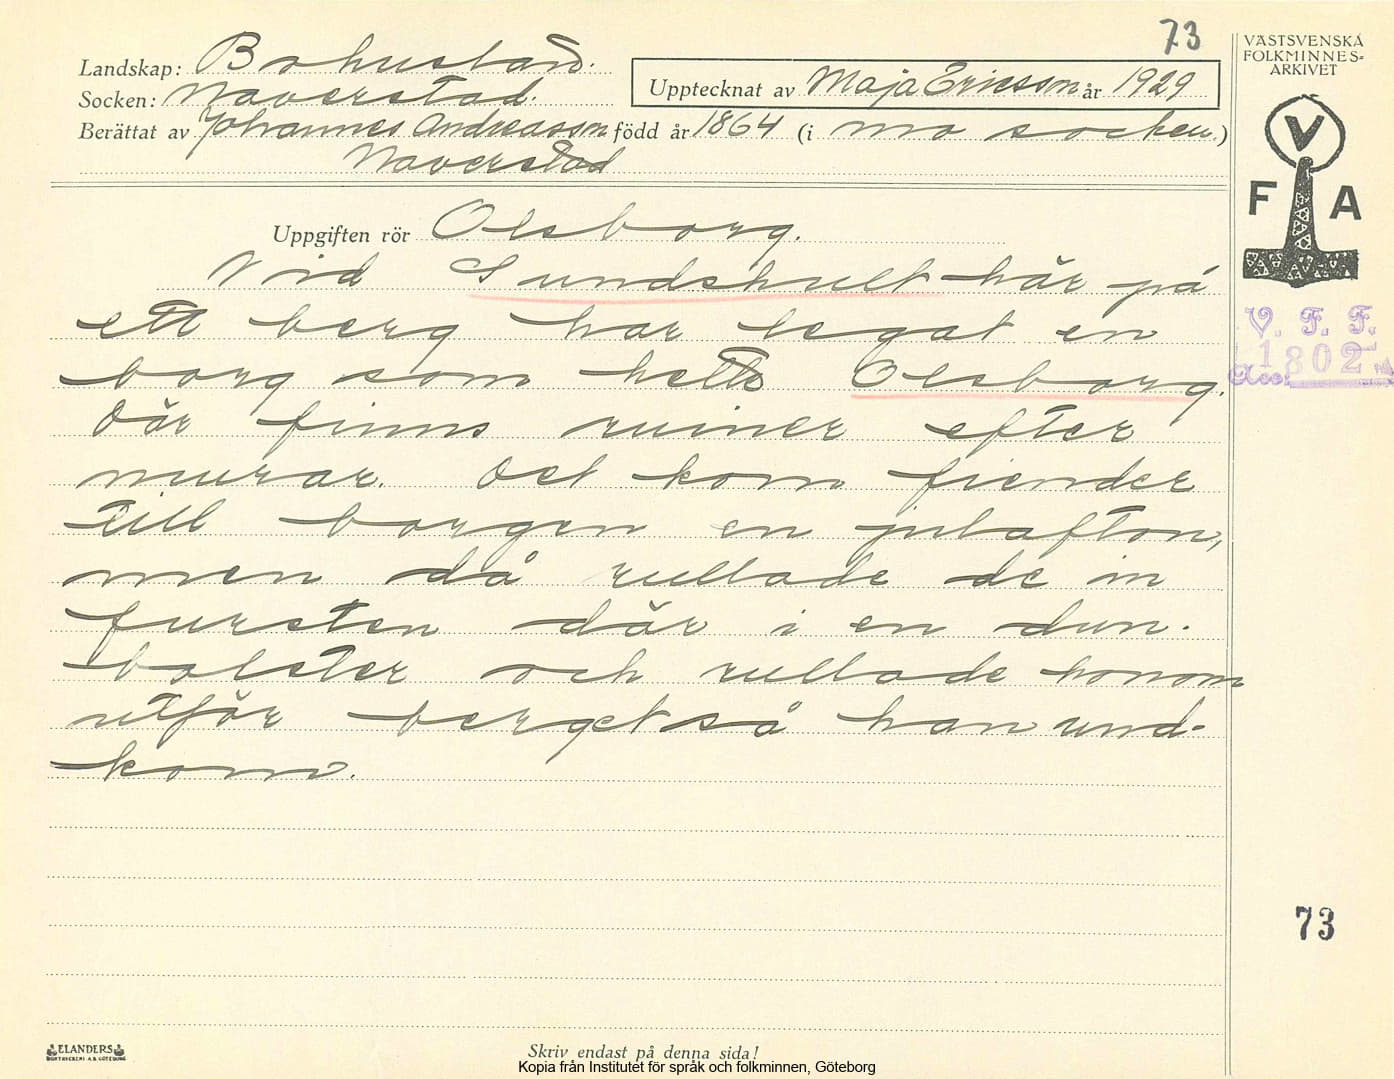 73
Landskap: Bohuslän.
Socken: Naverstad.
Upptecknat av Maja Ericsson år 1929
Berättat av Johannes Andreasson född år 1864 (i Mo socken.)
Naverstad
VÄSTSVENSKA
FOLKMINNES=
ARKIVET
V
F A
Uppgiften rör Olsborg.
Vid Sundshult här på
ett berg har legat en
borg som hette Olsborg.
Där finns ruiner efter
murar. Det kom fiender
till borgen en julafton,
men då rullade de in
fursten där i en dun-
bolster och rullade honom
utför berget så han und-
kom.
V. F. F.
Acc. 1802
73
ELANDERS
BOKTRYCKERI A.B. GÖTEBORG
Skriv endast på denna sida!
Kopia från Institutet för språk och folkminnen, Göteborg